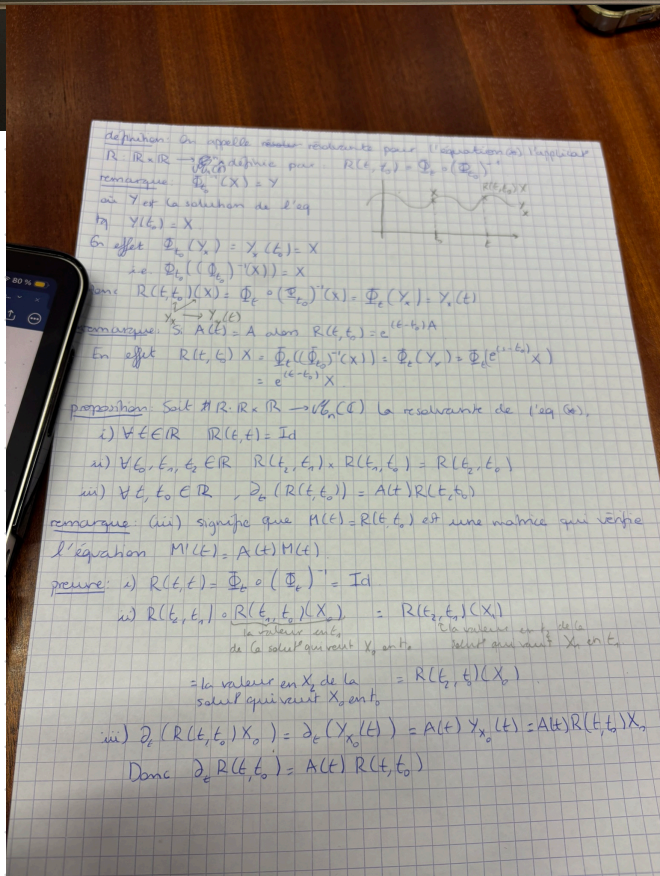 définition: On appelle résolvante pour l'équation (*) l'applicat°
R: ℝ×ℝ → M_n(ℂ) définie par R(t, t₀) = Φ_t ∘ (Φ_t₀)⁻¹
remarque Φ_t₀⁻¹(X) = Y
où Y est la solution de l'eq
tq Y(t₀) = X
R(t,t₀)X
X
Y_x
t₀ t
En effet Φ_t₀(Y_x) = Y_x(t₀) = X
i.e. Φ_t₀((Φ_t₀)⁻¹(X)) = X
donc R(t,t₀)(X) = Φ_t ∘ (Φ_t₀)⁻¹(X) = Φ_t(Y_x) = Y_x(t)
Y_x → Y_x(t)
remarque: Si A(t) = A alors R(t,t₀) = e^{(t-t₀)A}
En effet R(t,t₀) X = Φ_t((Φ_t₀)⁻¹(X)) = Φ_t(Y_x) = Φ_t(e^{(·-t₀)}X)
= e^{(t-t₀)}X
proposition: Soit R: ℝ×ℝ → M_n(ℂ) la resolvante de l'eq (*),
i) ∀t∈ℝ R(t,t) = Id
ii) ∀t₀, t₁, t₂ ∈ℝ R(t₂,t₁) × R(t₁,t₀) = R(t₂,t₀)
iii) ∀t, t₀ ∈ ℝ, ∂_t(R(t,t₀)) = A(t)R(t,t₀)
remarque: (iii) signifie que M(t) = R(t,t₀) est une matrice qui vérifie
l'équation M'(t) = A(t) M(t)
preuve: i) R(t,t) = Φ_t ∘ (Φ_t)⁻¹ = Id
ii) R(t₂,t₁) ∘ R(t₁,t₀)(X₀) = R(t₂,t₁)(X₁)
la valeur en t₁ la valeur en t₂ de la
de la solut° qui vaut X₀ en t₀ solut° qui vaut X₁ en t₁
= la valeur en X₂ de la = R(t₂,t₀)(X₀)
solut° qui vaut X₀ en t₀
iii) ∂_t(R(t,t₀)X₀) = ∂_t(Y_X₀(t)) = A(t) Y_X₀(t) = A(t)R(t,t₀)X₀
Donc ∂_t R(t,t₀) = A(t) R(t,t₀)
80 %